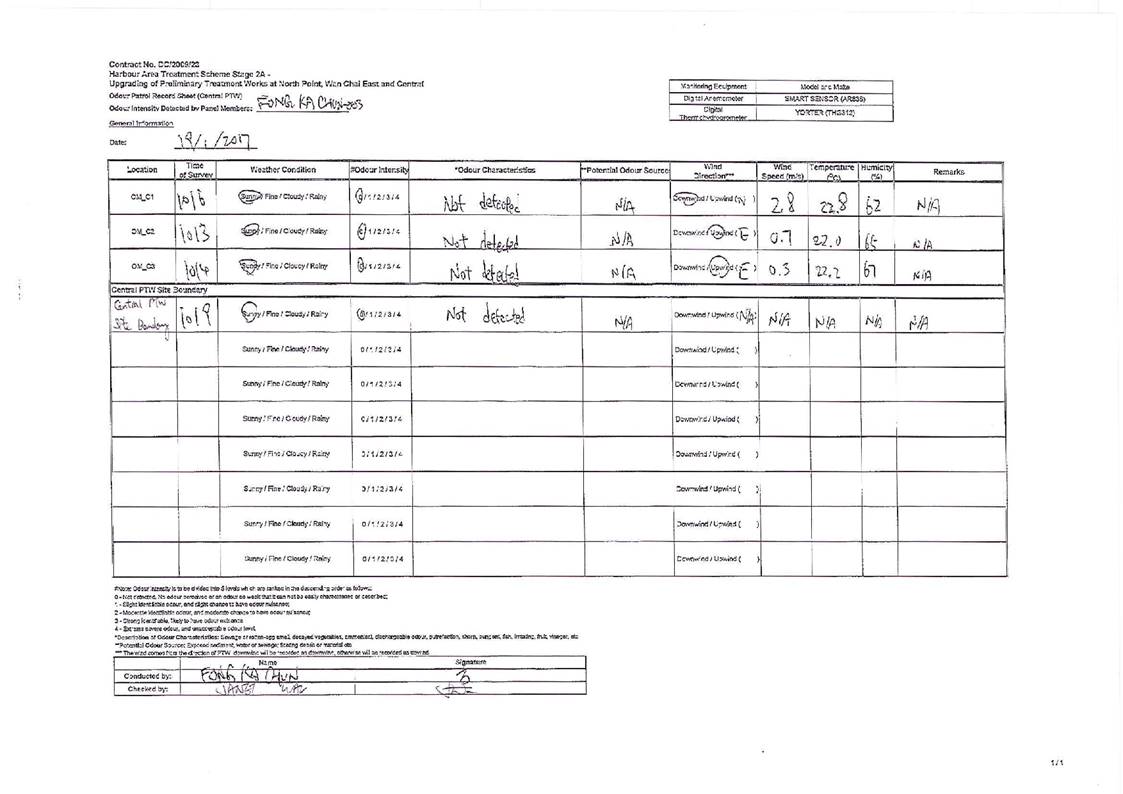 Contract No. DC/2009/23
Harbour Area Treatment Scheme Stage 2A -
Upgrading of Preliminary Treatment Works at North Point, Wan Chai East and Central
Odour Patrol Record Sheet (Central PTW)
Odour Intensity Detected by Panel Members: FONG KA CHUN
General Information
Date: 19/1/2017
Monitoring Equipment Model and Make
Digital Anemometer SMART SENSOR (AR836)
Digital Thermohydrogrometer YORTER (THG312)
Location Time of Survey Weather Condition #Odour Intensity *Odour Characteristics **Potential Odour Source Wind Direction*** Wind Speed (m/s) Temperature (ºC) Humidity (%) Remarks
OM_C1 1016 Sunny / Fine / Cloudy / Rainy 0/1/2/3/4 Not detected N/A Downwind / Upwind (N) 2.8 22.8 62 N/A
OM_C2 1013 Sunny / Fine / Cloudy / Rainy 0/1/2/3/4 Not detected N/A Downwind / Upwind (E) 0.7 22.0 65 N/A
OM_C3 Sunny / Fine / Cloudy / Rainy 0/1/2/3/4 Not detected N/A Downwind / Upwind (E) 0.3 22.2 67 N/A
Central PTW Site Boundary
Central PTW Site Boundary 1019 Sunny / Fine / Cloudy / Rainy 0/1/2/3/4 Not detected N/A Downwind / Upwind (N/A) N/A N/A N/A N/A
Sunny / Fine / Cloudy / Rainy 0/1/2/3/4 Downwind / Upwind ( )
Sunny / Fine / Cloudy / Rainy 0/1/2/3/4 Downwind / Upwind ( )
Sunny / Fine / Cloudy / Rainy 0/1/2/3/4 Downwind / Upwind ( )
Sunny / Fine / Cloudy / Rainy 0/1/2/3/4 Downwind / Upwind ( )
Sunny / Fine / Cloudy / Rainy 0/1/2/3/4 Downwind / Upwind ( )
Sunny / Fine / Cloudy / Rainy 0/1/2/3/4 Downwind / Upwind ( )
Sunny / Fine / Cloudy / Rainy 0/1/2/3/4 Downwind / Upwind ( )
#Note: Odour Intensity is to be divided into 5 levels which are ranked in the descending order as follows:
0 - Not detected. No odour perceived or an odour so weak that it can not be easily characterised or described;
1 - Slight identifiable odour, and slight chance to have odour nuisance;
2 - Moderate identifiable odour, and moderate chance to have odour nuisance;
3 - Strong identifiable, likely to have odour nuisance
4 - Extreme severe odour, and unacceptable odour level.
*Description of Odour Characteristics: Sewage or rotten-egg smell, decayed vegetables, ammonical, dischargeable odour, putrefaction, sharp, pungent, fish, irritating, fruit, vinegar, etc
**Potential Odour Source: Exposed sediment, water or sewage; floating debris or material etc
*** The wind comes from the direction of PTW, downwind will be recorded as downwind, otherwise will be recorded as upwind
Name Signature
Conducted by: FONG KA CHUN
Checked by: JANET
1/1